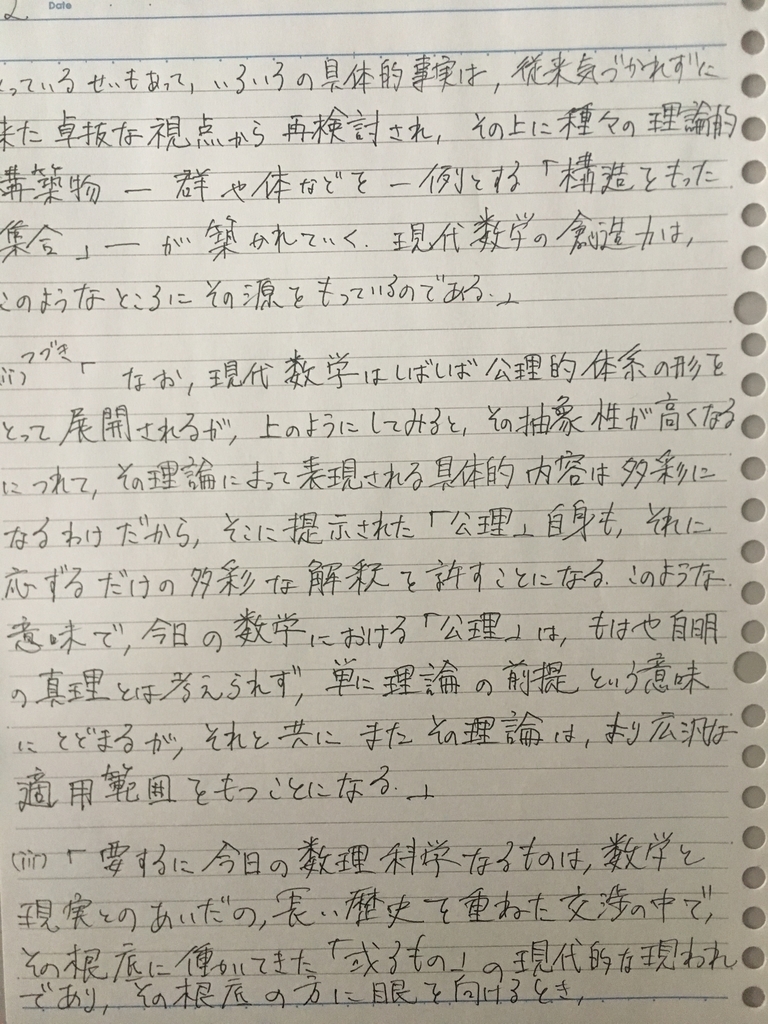 2. Date
とっているせいもあって, いろいろの具体的事実は, 従来気づかれずに
来た卓抜な視点から再検討され, その上に種々の理論的
構築物 ― 群や体などを一例とする「構造をもった
集合」― が築かれていく. 現代数学の創造力は,
このようなところにその源をもっているのである.」
(ii) つづき 「なお, 現代数学はしばしば公理的体系の形を
とって展開されるが, 上のようにしてみると, その抽象性が高くなる
につれて, その理論によって表現される具体的内容は多彩に
なるわけだから, そこに提示された「公理」自身も, それに
応ずるだけの多彩な解釈を許すことになる. このような
意味で, 今日の数学における「公理」は, もはや自明
の真理とは考えられず, 単に理論の前提という意味
にとどまるが, それと共にまたその理論は, より広汎な
適用範囲をもつことになる.」
(iii)「要するに今日の数理科学なるものは, 数学と
現実とのあいだの, 長い歴史を重ねた交渉の中で,
その根底に働いてきた「或るもの」の現代的な現われ
であり, その根底の方に眼を向けるとき,